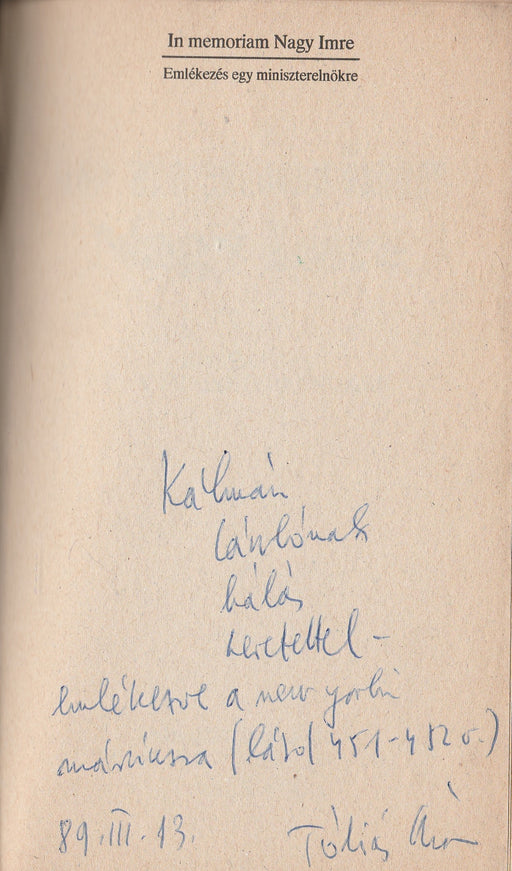 In memoriam Nagy Imre
Emlékezés egy miniszterelnökre
Kálmán
Lászlónak
hálás
szeretettel -
emlékezve a new yorki
márciusra (lásd 451-452 o.)
89.III.13. Tóbiás Áron